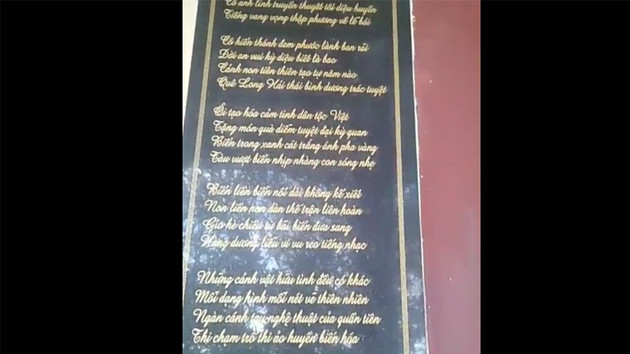 Có anh linh truyền thuyết tôi diệu huyền
Tiếng vang vọng thập phương về lễ hội
Có hiển thánh đem phước lành ban rải
Đời an vui kỳ diệu biết là bao
Cảnh non tiên thiên tạo tự năm nào
Quê Long Hải thái bình dương trác tuyệt
Si tạo hóa cảm tình dân tộc Việt
Tặng món quà diễm tuyệt đại kỳ quan
Biển trong xanh cát trắng ánh pha vàng
Tàu vượt biển nhịp nhàng con sóng nhẹ
Biển liền biển nối dài không kể xiết
Non liền non dàn thế trận liên hoàn
Gió hè chiều từ bãi biển đưa sang
Hàng dương liễu vi vu reo tiếng nhạc
Những cảnh vật hữu tình đều có khác
Mỗi dạng hình mỗi nét vẽ thiên nhiên
Ngàn cánh tay nghệ thuật của quần tiên
Thi chạm trổ thi ảo huyền biến hóa